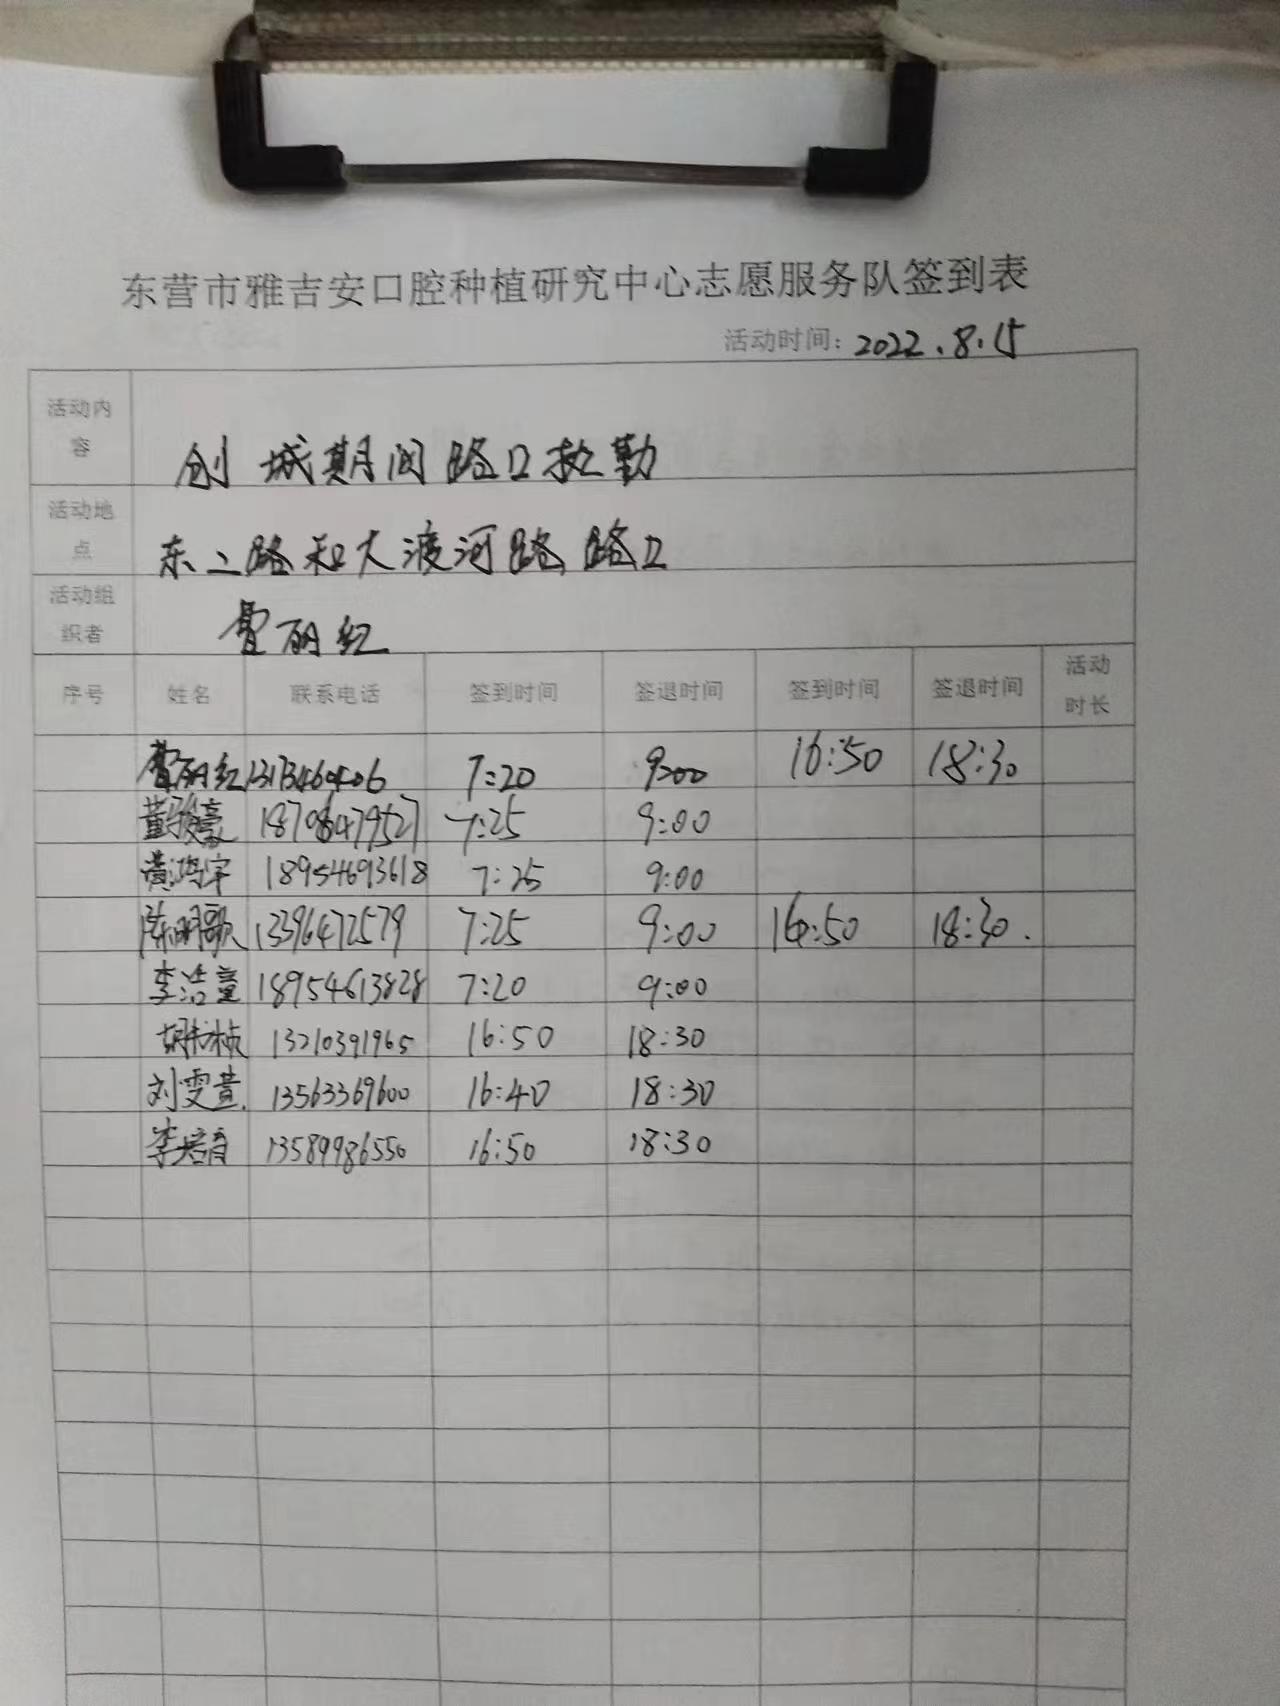 东营市雅吉安口腔种植研究中心志愿服务队签到表
活动时间：2022.8.15
活动内容 创城期间路口执勤
活动地点 东二路和大渡河路路口
活动组织者 丽红
序号 姓名 联系电话 签到时间 签退时间 签到时间 签退时间 活动时长
丽红 7:20 9:00 16:50 18:30
董骏豪 18706479527 7:25 9:00
黄鸿宇 18954693618 7:25 9:00
陈明歌 13396472579 7:25 9:00 16:50 18:30.
李浩童 18954613828 7:20 9:00
胡 13210391965 16:50 18:30
刘雯萱. 13563369600 16:40 18:30
李培育 13589986550 16:50 18:30